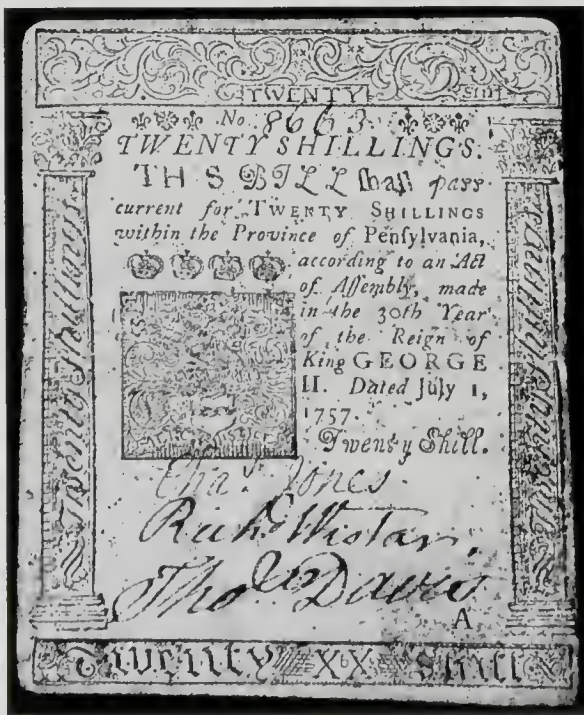 TWENTY SHIL
No. 8663
TWENTY SHILLINGS.
TH S BILL shall pass
current for TWENTY SHILLINGS
within the Province of Pensylvania,
according to an Act
of Assembly, made
in the 30th Year
of the Reign of
King GEORGE
II. Dated July 1,
1757.
Twenty Shill.
Cha.s Jones
Rich.d Wistar
Tho.s Davis
A
Twenty XX Shill
Twenty Shillings
Twenty Shillings